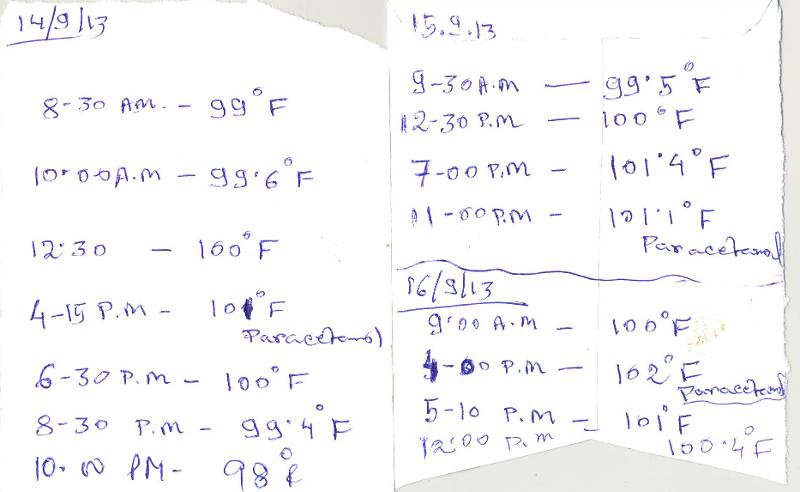 14/9/13
8-30 A.M. - 99°F
10.00 A.M - 99.6°F
12.30 - 100°F
4-15 P.M - 101°F
Paracetamol
6-30 P.M - 100°F
8-30 P.M - 99.4°F
10.00 PM - 98°F
15.9.13
9-30 A.M - 99.5°F
12-30 P.M - 100°F
7-00 P.M - 101.4°F
11-00 P.M - 101.1°F
Paracetamol
16/9/13
9.00 A.M - 100°F
4-00 P.M - 102°F
Paracetamol
5-10 P.M - 101°F
12:00 P.M 100.4°F